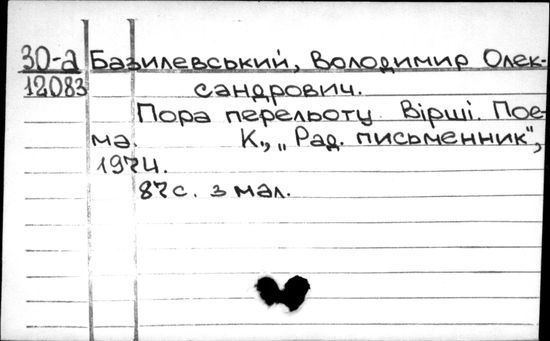 30-а Базилевський, Володимир Олек-
12083 сандрович.
Пора перельоту. Вірші. Пое-
ма. К., „Рад. письменник",
1974.
87с. з мал.